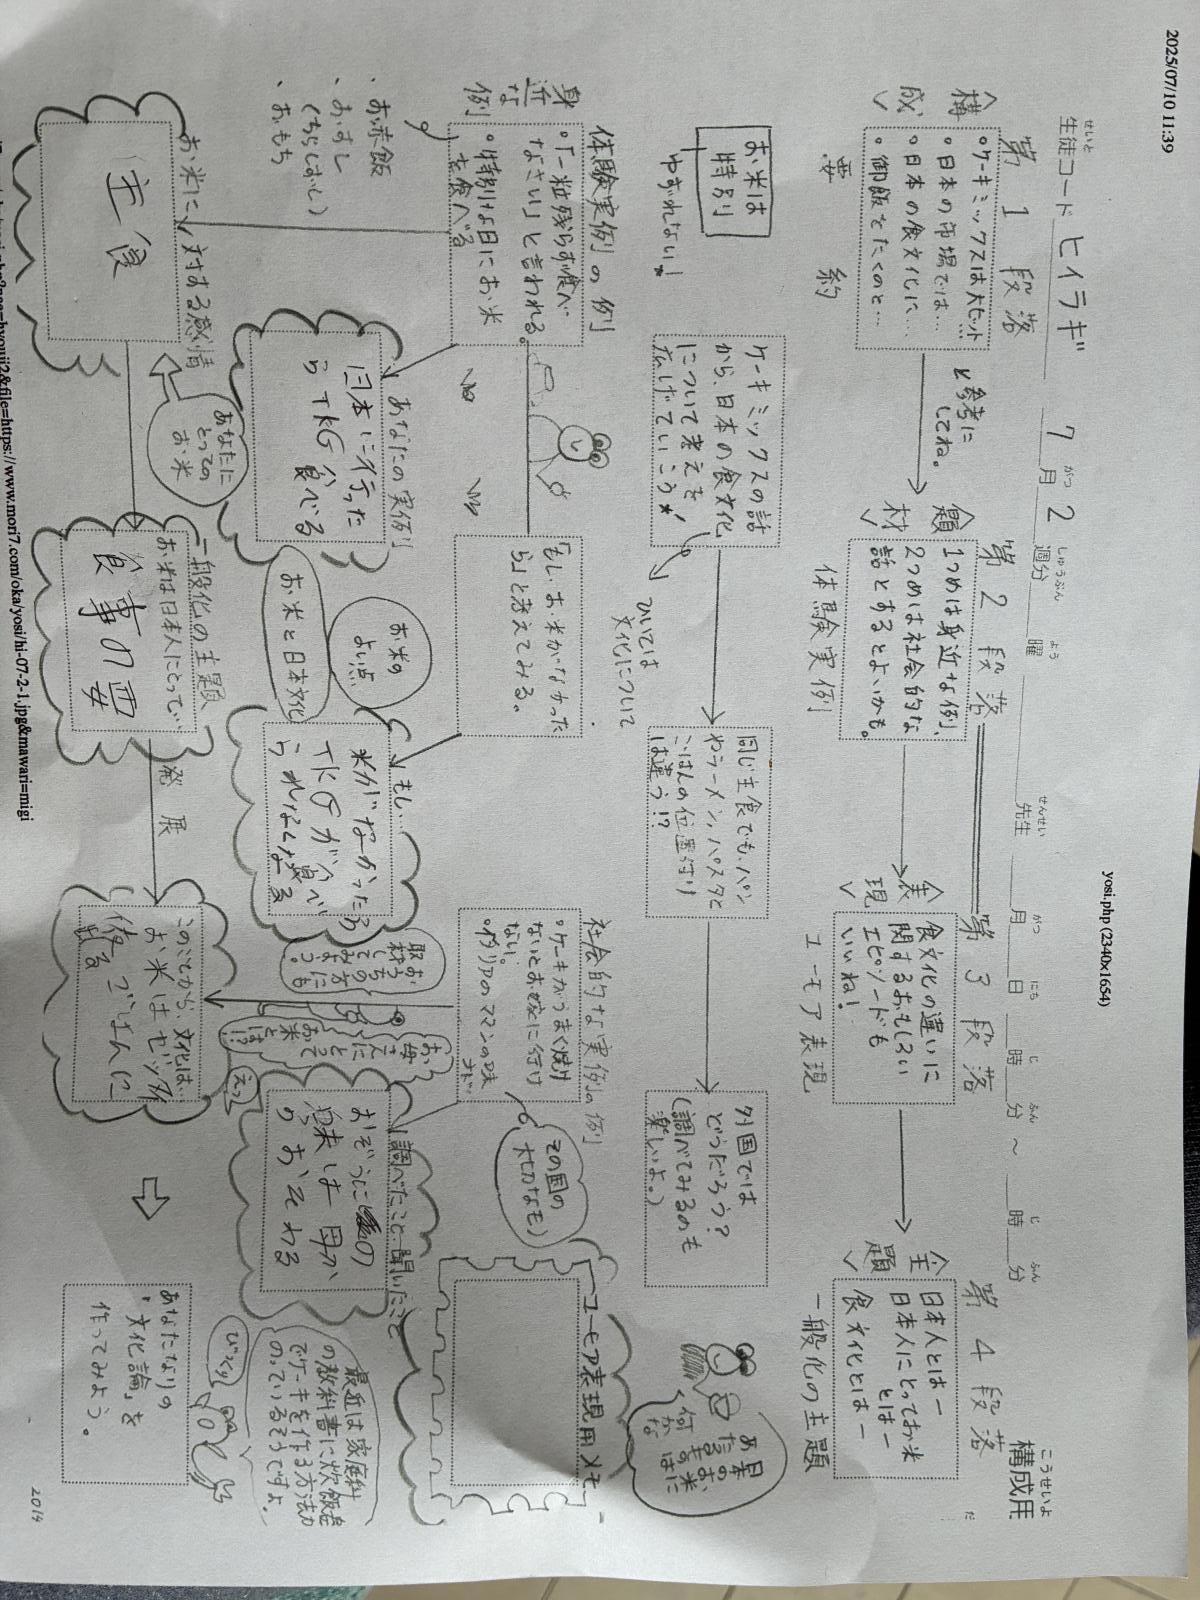 2025/07/10 11:39
yosi.php (2340×1654)
生徒コード ヒイラギ 7月2週分 曜 先生 月 日 時 分 ～ 時 分
せいと がつ しゅうぶん よう せんせい がつ にち じ ふん じ ふん
構成用
こうせいよ
だ
<構成>
第1段落
・ケーキミックスは大ヒット!
・日本の市場では…
・日本の食文化に…
・御飯をたくのと…
要約
参考に
してね。
<題材>
第2段落
1つめは身近な例、
2つめは社会的な
話とするとよいかも。
体験実例
<表現>
第3段落
食文化の違いに
関するおもしろい
エピソードも
いいね!
ユーモア表現
<主題>
第4段落
日本人とはー
日本人にとってお米
とはー
食文化とはー
一般化の主題
お米は
特別
ゆずれない!
ケーキミックスの話
から、日本の食文化
について考えを
広げていこう
ひいては
文化について
同じ主食でも、パン
やラーメン、パスタと
ごはんの位置付け
は違う!?
外国では
どうだろう?
(調べてみるのも
楽しいよ。)
日本の
お米は
何かな
体験実例の例
身近な例
・「一粒残らず食べ
なさい」と言われる。
・特別な日にお米
を食べる
・お赤飯
・おすし
(ちらしずし)
・おもち
「もし、お米がなかった
ら」と考えてみる。
社会的な実例の例
・ケーキがうまく焼け
ないとお嫁に行け
ない。
・イタリアのママンの味
など…
その国の
大切なモノ
ユーモア表現用メモ
あなたの実例
日本に行った
らTKG食べる
お米の
よい点
お米と日本文化
もし…
米がなかったら
TKGが食べ
られなくなる
取材
お
お母さんに
とって
お米とは!?
えっ
調べたこと・聞いたこと
おぞうにの
味は母か
らおそわる
最近は家庭科
の教科書に炊飯器
でケーキを作る方法が
のっているそうですよ。
びっくり
お米に対する感情
主食
あなたに
とっての
お米
一般化の主題
お米は日本人にとってい
食事の要
発展
このことから、文化は、
お米はゼッタイ
ごはんに
あなたなりの
「文化論」を
作ってみよう。
2014
https://www.mori7.com/oka/yosi/hi-07-2-1.jpg&mawari=migi